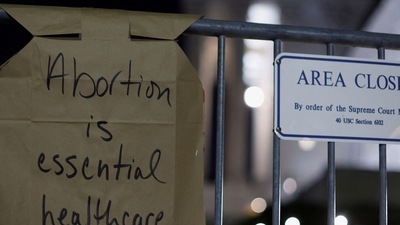 Abortion
is
essential
healthcare
AREA CLOS
By order of the Supreme Court M
40 USC Section 6102